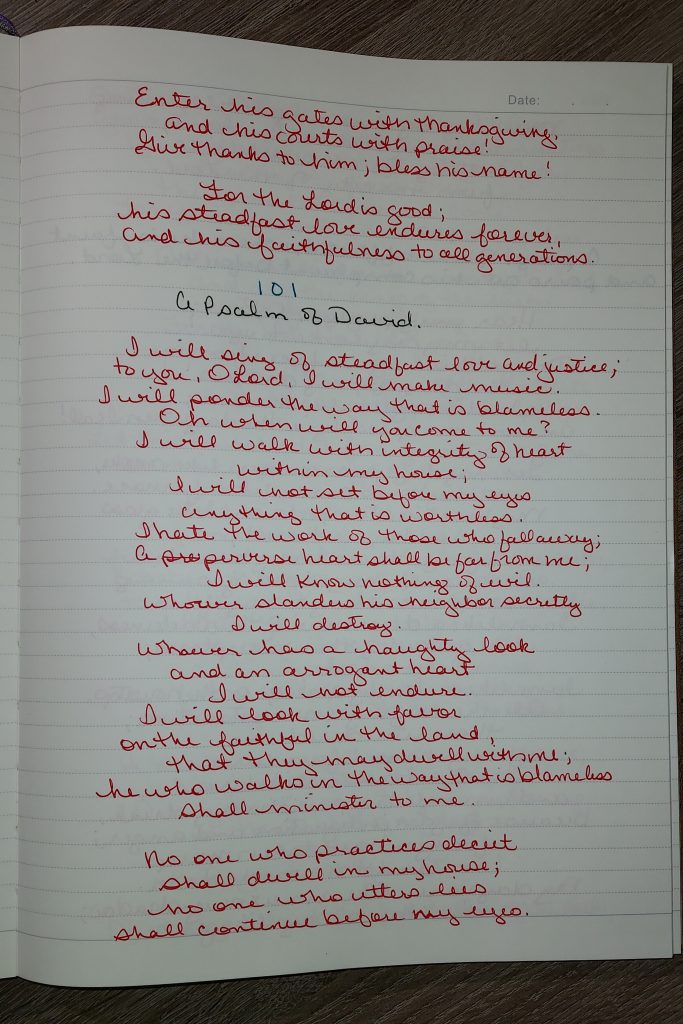 Date:
Enter his gates with thanksgiving,
and his courts with praise!
Give thanks to him; bless his name!
For the Lord is good;
his steadfast love endures forever,
and his faithfulness to all generations.
101
A Psalm of David.
I will sing of steadfast love and justice;
to you, O Lord, I will make music.
I will ponder the way that is blameless.
Oh when will you come to me?
I will walk with integrity of heart
within my house;
I will not set before my eyes
anything that is worthless.
I hate the work of those who fall away;
A pre perverse heart shall be far from me;
I will know nothing of evil.
Whoever slanders his neighbor secretly
I will destroy.
Whoever has a haughty look
and an arrogant heart
I will not endure.
I will look with favor
on the faithful in the land,
that they may dwell with me;
he who walks in the way that is blameless
shall minister to me.
No one who practices deceit
shall dwell in my house;
no one who utters lies
shall continue before my eyes.